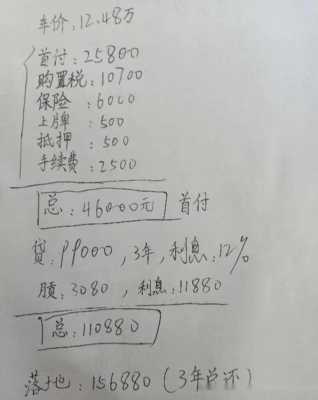 车价:12.48万
首付:25800
购置税:10700
保险:6000
上牌:500
抵押:500
手续费:2500
总:46000元 首付
贷:99000,3年,利息:12%
月供:3080,利息:11880
总:110880
落地:156880(3年总还)